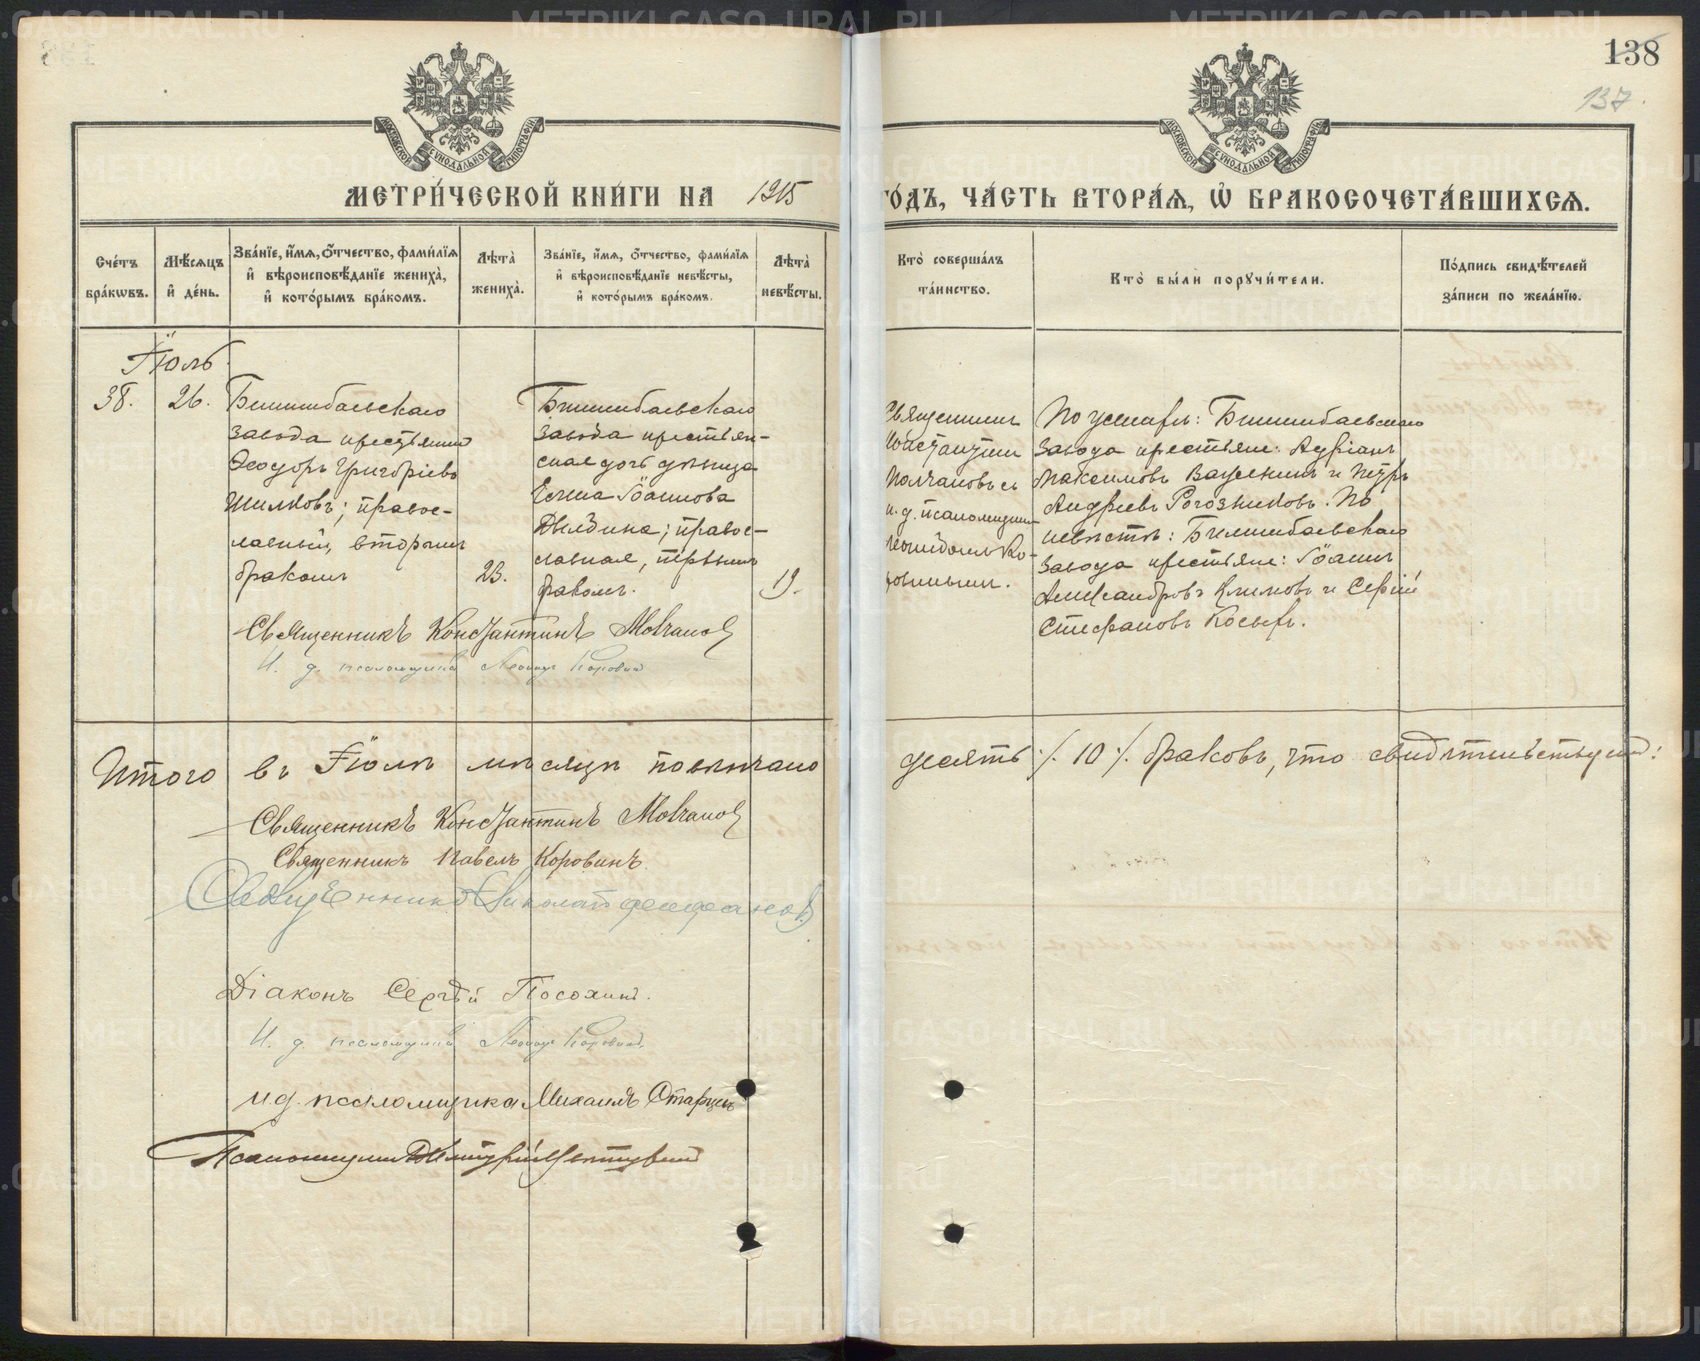 138
137.
МЕТРИ́ЧЕСКОЙ КНИ́ГИ НА 1915 ГО́ДЪ, ЧА́СТЬ ВТОРА́Я, Ѡ҆ БРАКОСОЧЕТА́ВШИХСЯ.
Сче́тъ бра́кωвъ.
Мѣ́сяцъ и҆ де́нь.
Зва́нїе, и҆́мя, ѻ҆́тчество, фами́лїя
и҆ вѣроисповѣ́данїе жениха̀,
и҆ кото́рымъ бра́комъ.
Лѣта̀ жениха̀.
Зва́нїе, и҆́мя, ѻ҆́тчество, фами́лїя
и҆ вѣроисповѣ́данїе невѣ́сты,
и҆ кото́рымъ бра́комъ.
Лѣта̀ невѣ́сты.
Кто̀ соверша́лъ
та́инство.
Кто̀ бы́ли поручи́тели.
По́дпись свидѣ́телей
за́писи по жела́нїю.
Іюль
38.
26.
Билимбаевскаго
завода крестьянинъ
Ѳеодоръ Григоріевъ
Шилковъ; правос-
лавный, вторымъ
бракомъ
23.
Билимбаевскаго
завода крестьян-
ская дочь девица
Іоаннова
Дылдина; правос-
лавная, первымъ
бракомъ.
19.
Священникъ
Константинъ
Молчановъ съ
и. д. псаломщика
Леонидомъ Ко-
ровинымъ.
По женихѣ: Билимбаевскаго
завода крестьяне: Адріанъ
Максимовъ и Петръ
Андреевъ Рогозниковъ. По
невѣстѣ: Билимбаевскаго
завода крестьяне: Іоаннъ
Александровъ Климовъ и Сергій
Стефановъ Косыхъ.
Священникъ Константинъ Молчановъ
И. д. псаломщика Леонидъ Коровинъ
Итого въ Іюлѣ мѣсяцѣ повѣнчано десять ./. 10 ./. браковъ, что свидѣтельствуемъ:
Священникъ Константинъ Молчановъ
Священникъ Павелъ Коровинъ.
Священникъ Николай
Діаконъ Сергѣй Посохинъ.
И. д. псаломщика Леонидъ Коровинъ.
и д. псаломщика Михаилъ Старцевъ
Псаломщикъ Дмитрій
METRIKI.GASO-URAL.RU